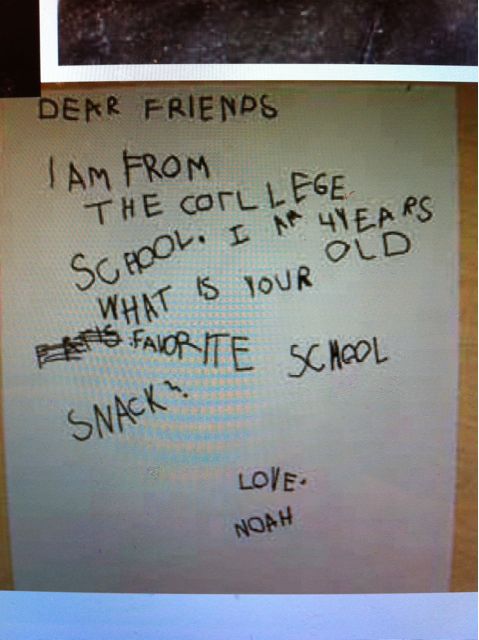 DEAR FRIENDS
I AM FROM
THE COLLLEGE
SCHOOL. I AM 4YEARS
OLD
WHAT IS YOUR
FAVORITE SCHOOL
SNACK?
LOVE.
NOAH